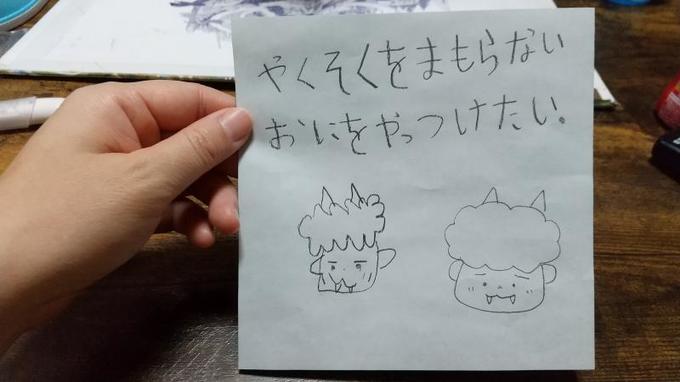 やくそくをまもらない
おにをやっつけたい。